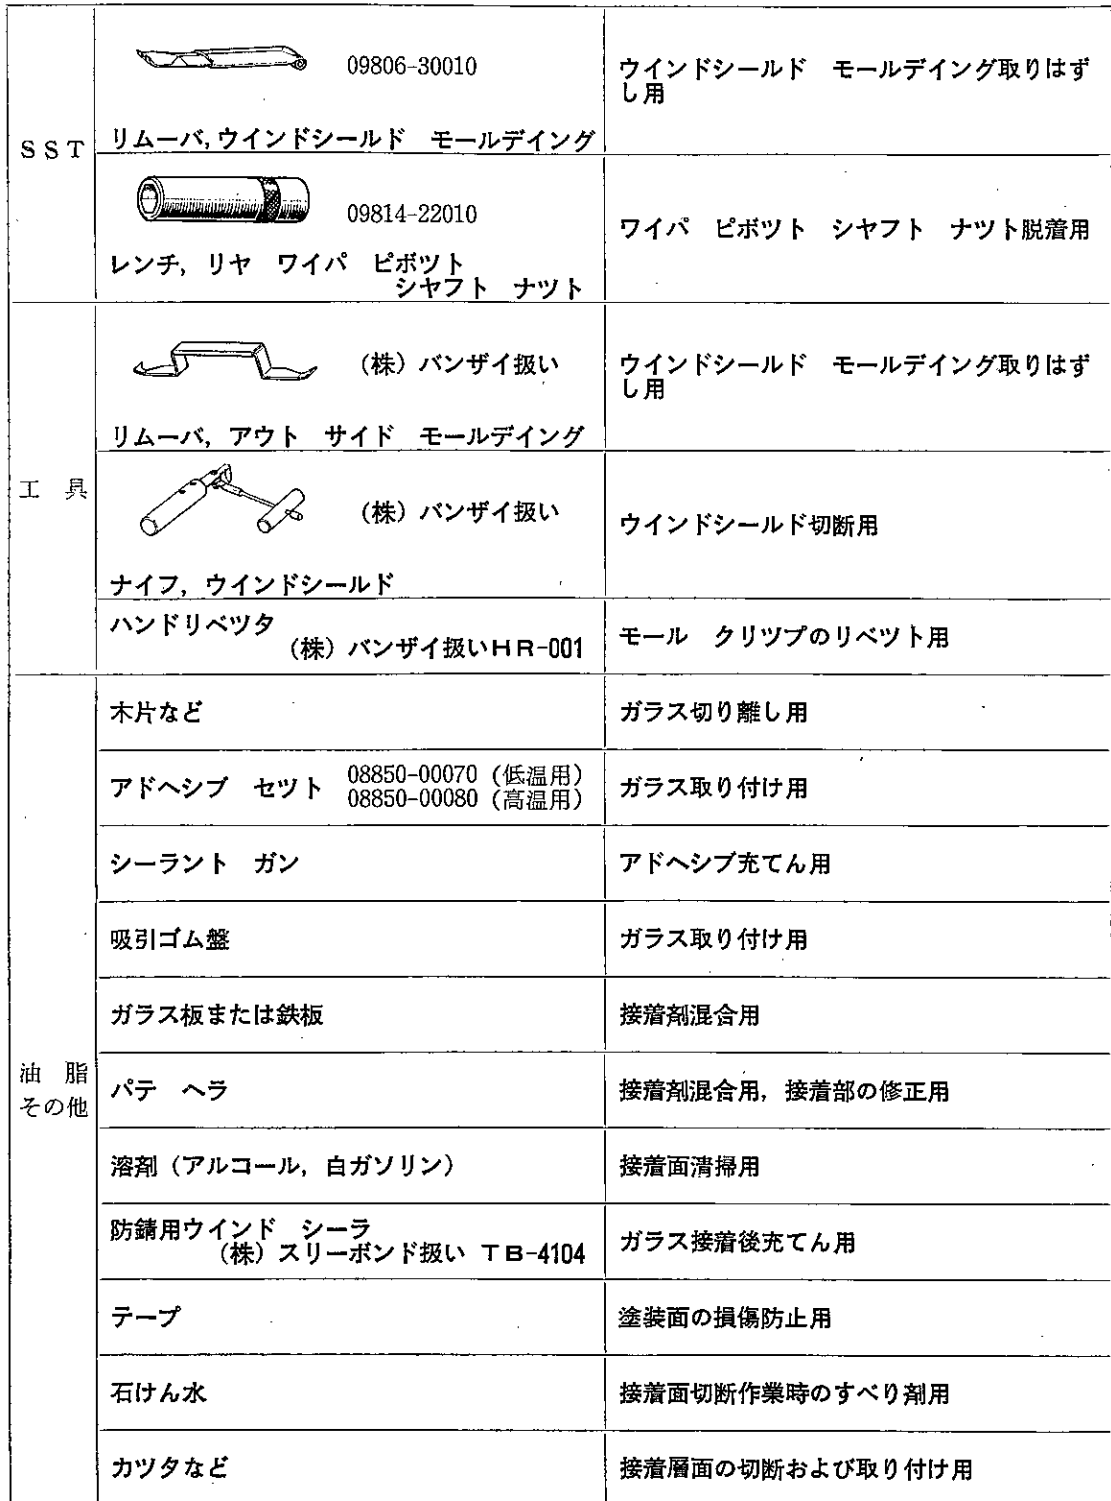 SST
09806-30010
リムーバ,ウインドシールド　モールデイング
ウインドシールド　モールデイング取りはず
し用
09814-22010
レンチ,　リヤ　ワイパ　ピボツト
シヤフト　ナツト
ワイパ　ピボツト　シヤフト　ナツト脱着用
工　具
(株) バンザイ扱い
リムーバ,　アウト　サイド　モールデイング
ウインドシールド　モールデイング取りはず
し用
(株) バンザイ扱い
ナイフ,　ウインドシールド
ウインドシールド切断用
ハンドリベツタ
(株) バンザイ扱いHR-001
モール　クリツプのリベツト用
油　脂
その他
木片など
ガラス切り離し用
アドヘシブ　セツト
08850-00070 (低温用)
08850-00080 (高温用)
ガラス取り付け用
シーラント　ガン
アドヘシブ充てん用
吸引ゴム盤
ガラス取り付け用
ガラス板または鉄板
接着剤混合用
パテ　ヘラ
接着剤混合用,　接着部の修正用
溶剤 (アルコール,　白ガソリン)
接着面清掃用
防錆用ウインド　シーラ
(株) スリーボンド扱い TB-4104
ガラス接着後充てん用
テープ
塗装面の損傷防止用
石けん水
接着面切断作業時のすべり剤用
カツタなど
接着層面の切断および取り付け用